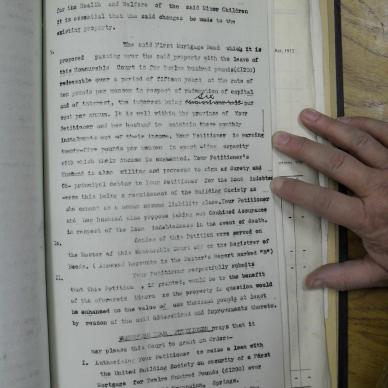 for the Health and Welfare of the said Minor Children
it is essential that the said changes be made to the
existing property.
9.
The said First Mortgage Bond which it is
proposed passing over the said property with the leave of
this Honourable Court is for Twelve hundred pounds(£1200)
redeemable over a period of fifteen years at the rate of
ten pounds per mensem in respect of redemption of capital
and of interest, the interest being Six per
cent per annum. It is well within the province of Your
Petitioner and her husband to maintain these monthly
instalments out of their income. Your Petitioner is earning
twenty-five pounds per mensem in
with which their income is augmented. Your Petitioner's
Husband is also willing and prepared to sign as Surety and
Co-principal debtor to Your Petitioner for the loan indebted-
ness this being a requirement of the Building Society as
she cannot as a woman assume liability alone. Your Petitioner
and her husband also propose taking out Combined Assurance
in respect of the Loan indebtedness in the event of death.
10.
Copies of this Petition were served on
the Master of this Honourable Court and on the Registrar of
Deeds. (Annexed hereunto is the Master's Report marked
11.
Your Petitioner respectfully submits
that this Petition, if granted, would be to the benefit
of the aforesaid Minors as the property in question would
be enhanced in the value of one thousand pounds at least
by reason of the said alterations and improvements thereto.
prays that it
may please this Court to grant an Order:-
1. Authorising Your Petitioner to raise a loan with
the United Building Society on security of a First
Mortgage for Twelve Hundred Pounds (£1200) over
Springs.
Act, 1913